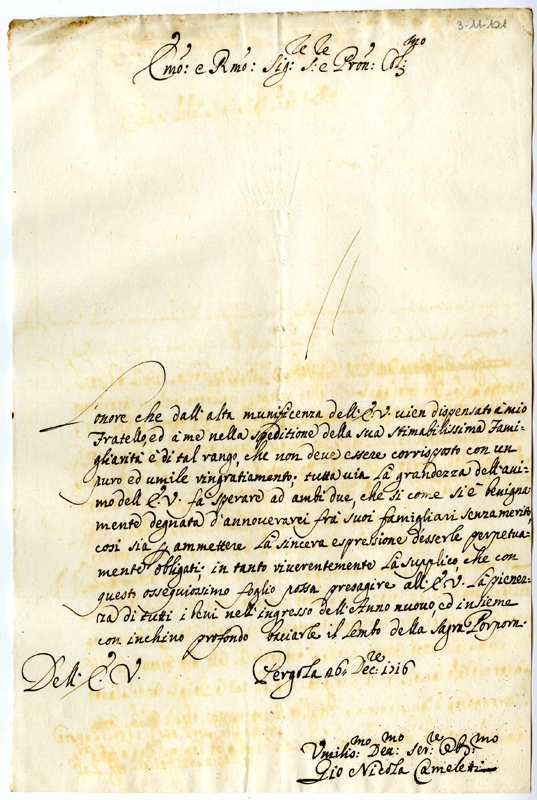 3-11-121
Em̃o: e Rm̃o: Sig:re S:re e Pron: Col:mo
L'onore che dall'alta munificenza dell'E.V. vien dispensato à mio
Fratello, ed à me nella speditione della sua stimabilissima Fami-
gliarità è di tal rango, che non deve essere corrisposto con un
puro ed umile ringratiamento; tutta uia la grandezza dell'ani-
mo dell'E.V. fà sperare ad ambi due, che si come si è benigna-
mente degnata d'annouerarci frà suoi famigliari senza merito,
così sia p ammettere la sincera espressione d'esserle perpetua-
mente obligati; in tanto riuerentemente la supplico, che con
questo ossequiosissimo foglio possa presagire all'E.V. la pienez-
za di tutti i beni nell'ingresso dell'Anno nuouo, ed insieme
con inchino profondo baciarle il lembo della Sagra Porpora.
Dell'E.V.
Pergola 26 Dec:re 1716
Vmilis:mo Deu:mo Ser:re Ob:mo
Gio Nicola Cameletti